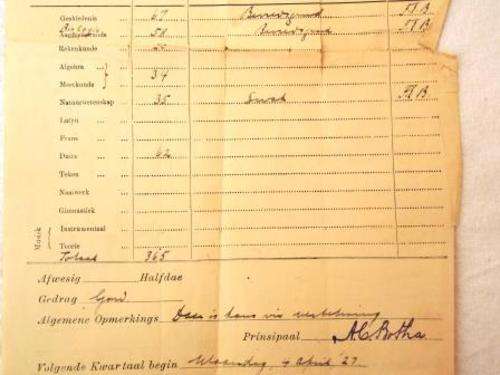 Geskiedenis ... 67 Bevredigend A.B.
Biologie 58 Bevredigend A.B.
Rekenkunde ...
Algebra ... } 34
Meetkunde ...
Natuurwetenskap ... 35 Swak A.B.
Latyn ...
Frans ...
Duits ... 62
Teken ...
Naaiwerk ...
Gimnastiek ...
Musiek { Instrumentaal ...
Teorie ...
Totaal 365
Afwesig Halfdae
Gedrag Goed
Algemene Opmerkings Daar is kans vir verbetering
Prinsipaal A C Botha
Volgende Kwartaal begin Maandag, 4 April '27